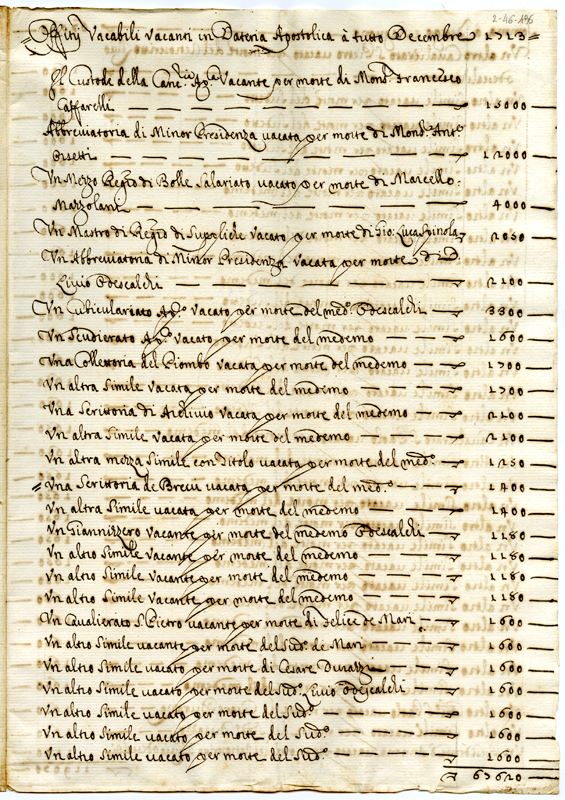 2-46-196
Offitij Vacabili vacanti in Dataria Apostolica à tutto Decembre 1713
Il Custode della Canc.ria Ap.ca Vacante per morte di Mons.r Francesco
Caffarelli 15000
Abbreviatoria di Minor Presidenza vacata per morte di Mons.r Ant.o
12000
Un Mezzo Reg.ro di Bolle Salariato vacato per morte di Marcello
Mazzolani 4000
Un Mastro di Reg.ro di Suppliche Vacato per morte di Gio: Luca Spinola 2050
Un Abbreviatoria di Minor Presidenza vacata per morte di D.
Livio Odescalchi 2100
Un Cubiculariato Ap.co vacato per morte del med.o Odescalchi 3300
Un Scudierato Ap.co vacato per morte del medemo 1600
Una Collettoria del Piombo vacata per morte del medemo 1700
Un altra Simile vacata per morte del medemo 1700
Una Scrittoria di Archivio vacata per morte del medemo 2100
Un altra Simile vacata per morte del medemo 2100
Un altra mezza Simile con Titolo vacata per morte del med.o 1250
Una Scrittoria de Brevi vacata per morte del med.o 1400
Un altra Simile vacata per morte del medemo 1400
Un Giannizzero vacante per morte del medemo Odescalchi 1180
Un altro Simile vacante per morte del medemo 1180
Un altro Simile Vacante per morte del medemo 1180
Un altro Simile Vacante per morte del medemo 1180
Un Cavalierato S. Pietro vacante per morte di Felice de Mari 1600
Un altro Simile vacante per morte del Sud.o de Mari 1600
Un altro Simile vacato per morte di Cesare Durazzi 1600
Un altro Simile vacato per morte del Sud.o Livio Odescalchi 1600
Un altro Simile vacato per morte del Sud.o 1600
Un altro Simile vacato per morte del Sud.o 1600
Un altro Simile vacato per morte del Sud.o 1600
67620